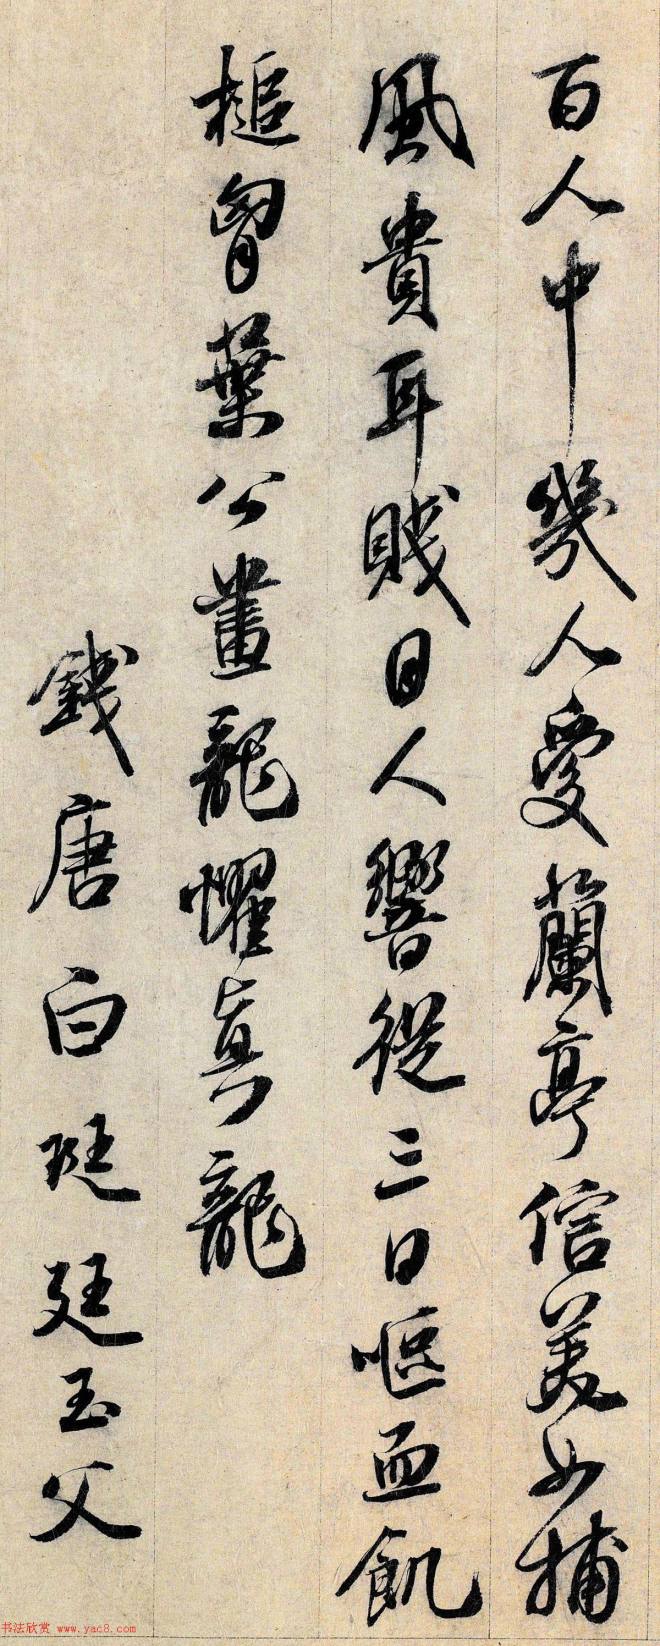 百人中幾人愛蘭亭信美如捕
風貴耳賤目人響從三日嘔血飢
搥胷葉公畫龍懼真龍
錢唐白珽廷玉父
书法欣赏 www.yac8.com